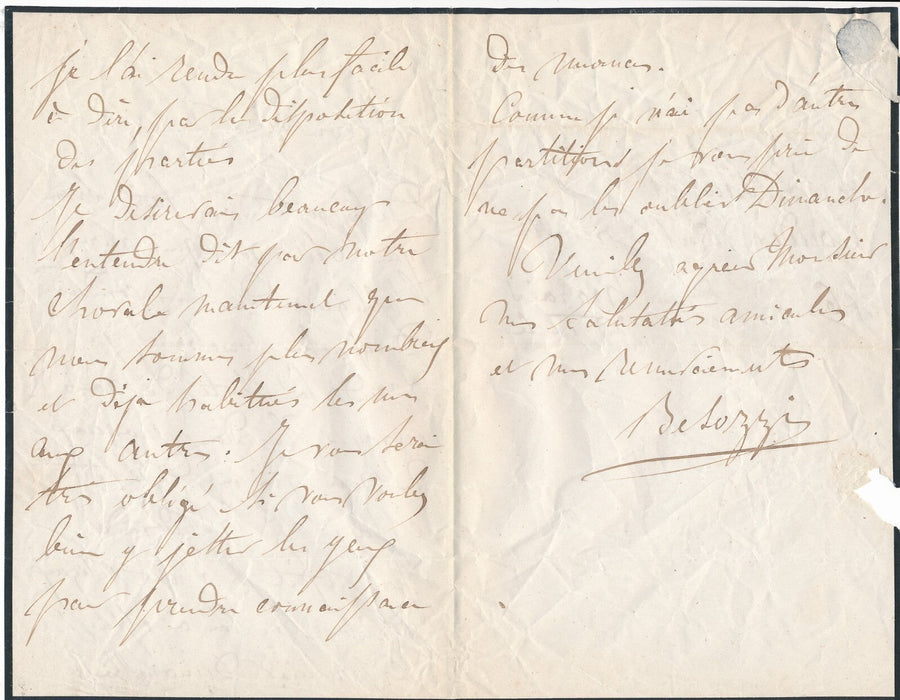 je l'ai rendu plus facile
à dire, par la disposition
des parties
Je desirerais beaucoup
l'entendre dit par notre
chorale maintenant que
nous sommes plus nombreux
et déja habitués les uns
aux autres. Je vous serai
très obligé si vous voulez
bien y jetter les yeux
pour prendre connaissance
des nuances.
Comme je n'ai pas d'autres
partitions je vous prie de
ne pas les oublier Dimanche.
Veuillez agréer Monsieur
mes salutations amicales
et mes remerciements
Besozzi